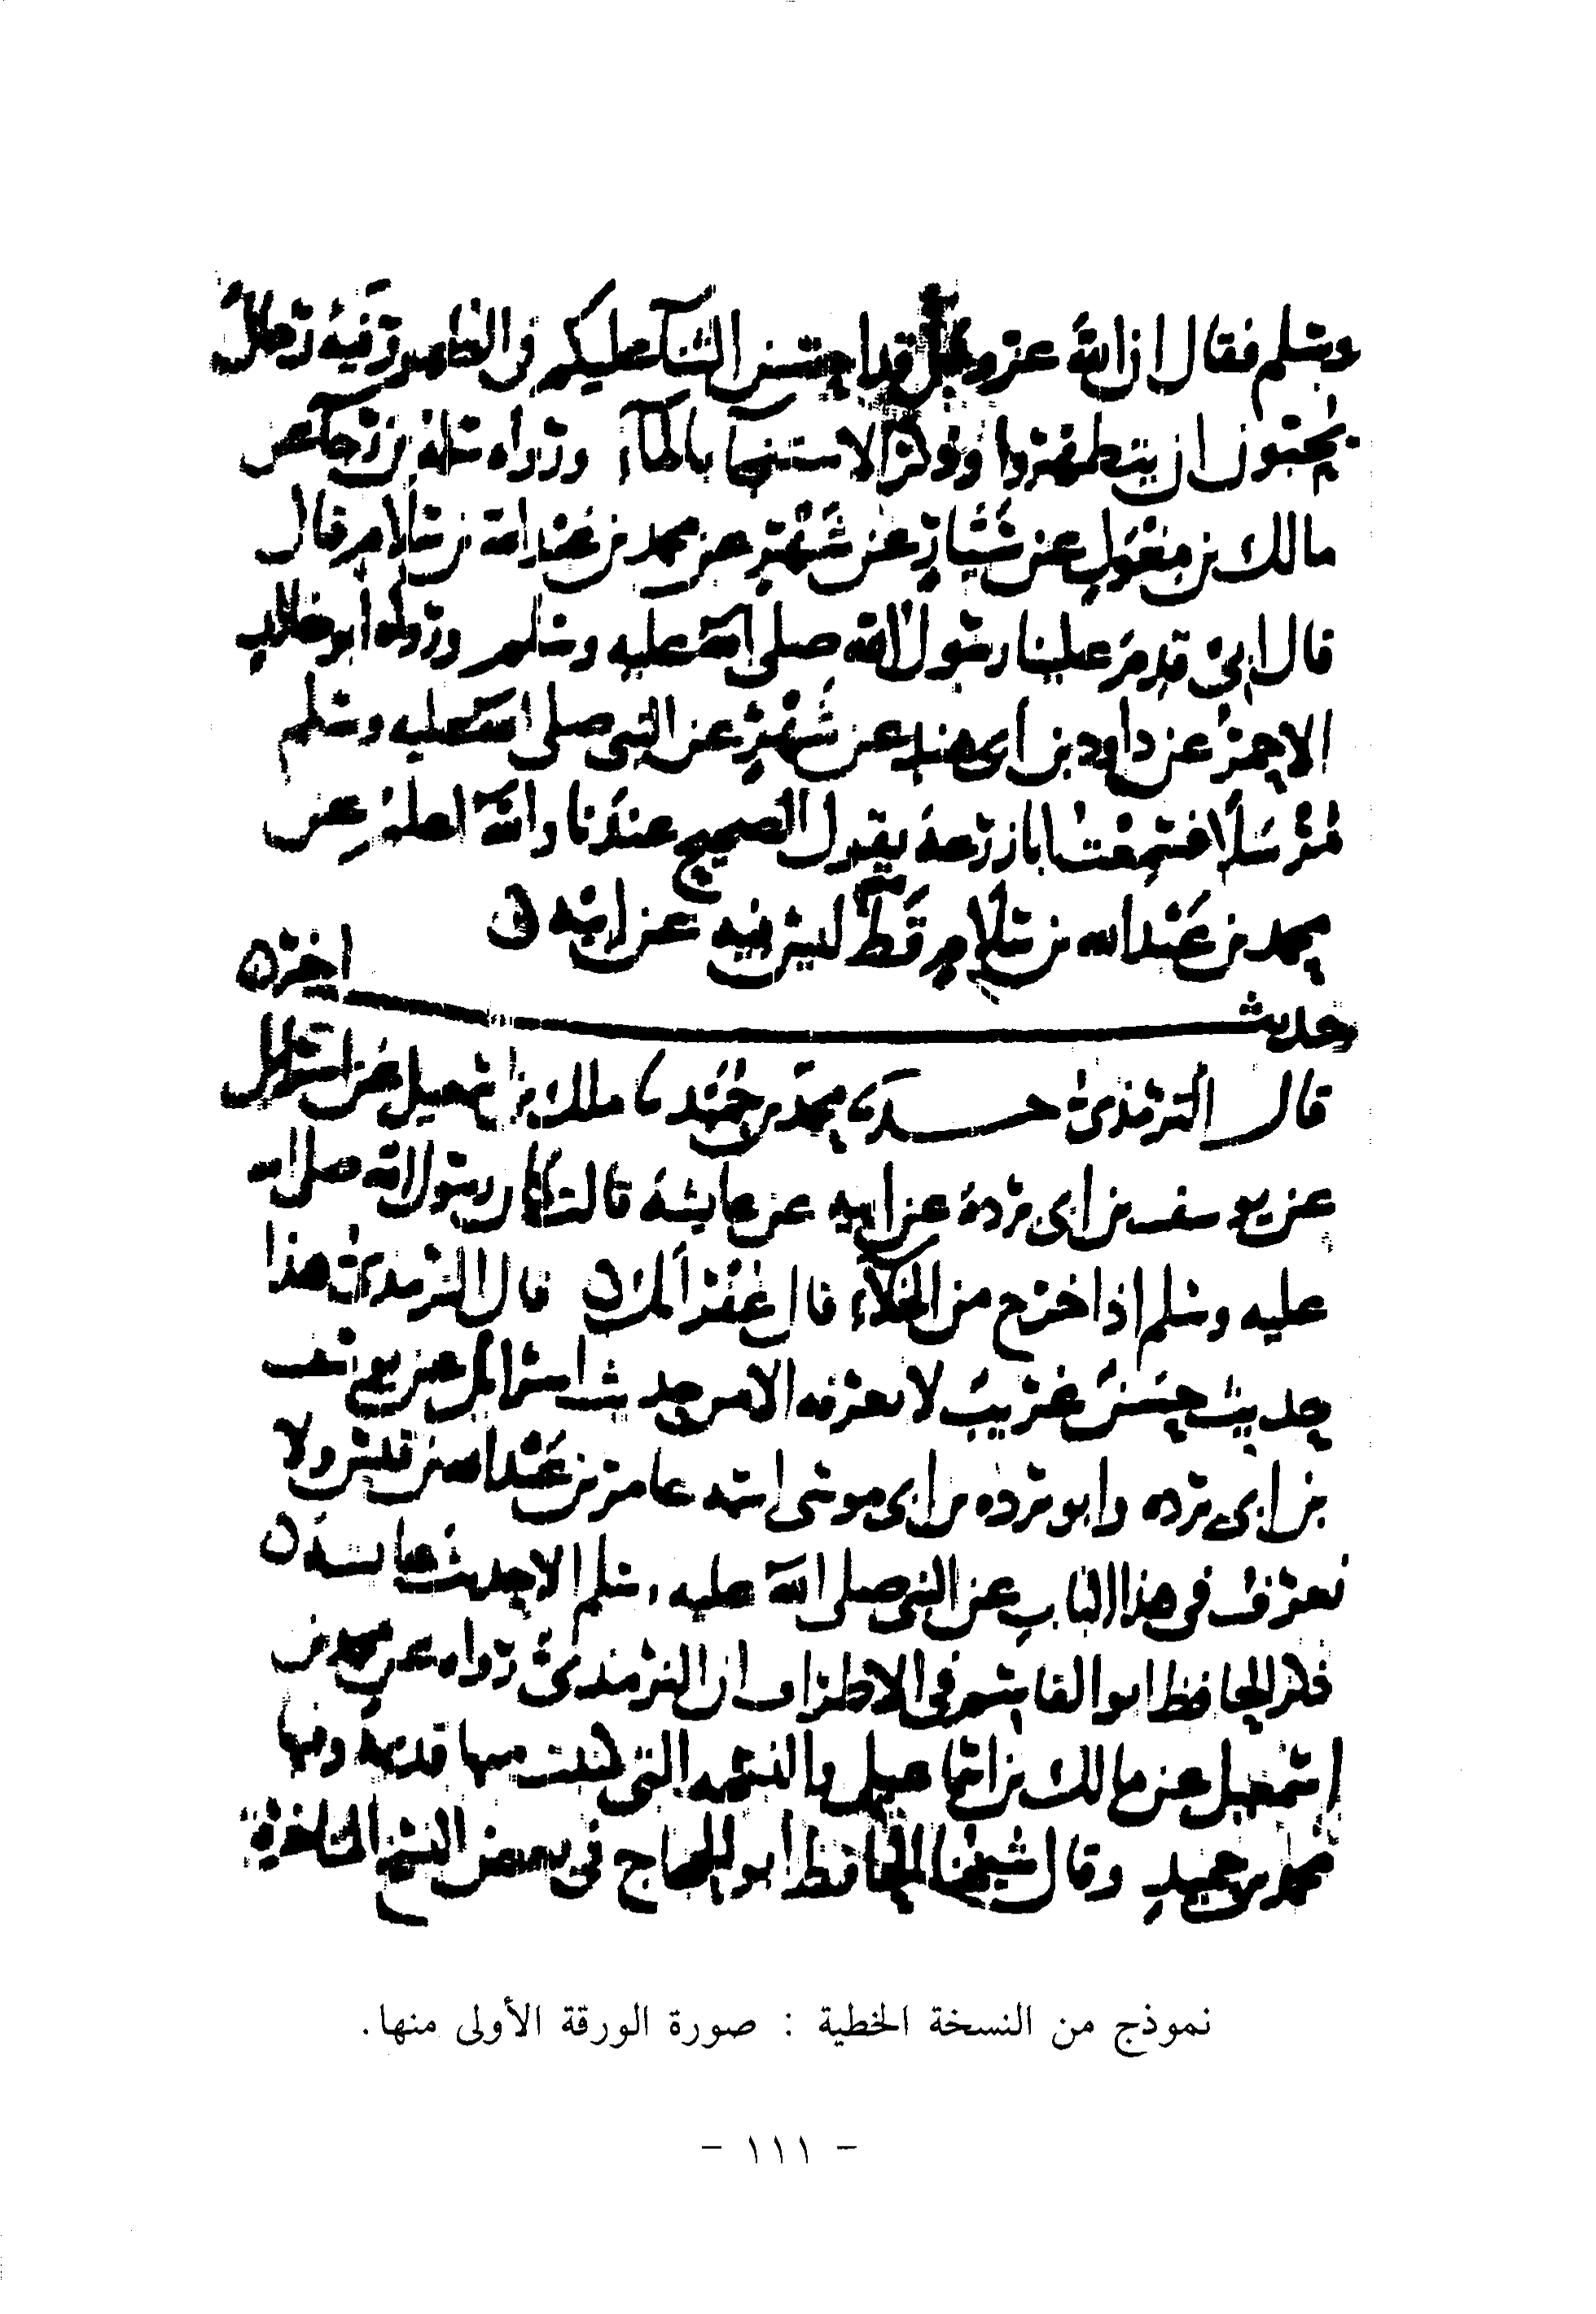 وسلم فقال ان الله عز وجل قد احسن الثنا عليكم في الطهور فيه رجال
يحبون ان يتطهروا وذكر الاستنجا بالمآء ورواه سلمة بن رجا عن
مالك بن مغول عن سيار عن شهر عن محمد بن عبد الله بن سلام قال
قال ابي قدم علينا رسول الله صلى الله عليه وسلم ورواه ابو خالد
الاحمر عن داود بن ابي هند عن شهر عن النبي صلى الله عليه وسلم
مرسلا فسمعت ابا زرعة يقول الصحيح عندنا والله اعلم عن
محمد بن عبد الله بن سلام قط ليس فيه عن ابيه
حديث اخر
قال الترمذي حدثنا محمد بن حميد ثنا ملك بن اسمعيل عن اسرائل
عن يوسف بن ابي بردة عن ابيه عن عايشة قالت كان رسول الله صلى الله
عليه وسلم اذا خرج من الخلاء قال غفرانك قال الترمذي هذا
حديث حسن غريب لا نعرفه الا من حديث اسرائل عن يوسف
بن ابي برده وابو برده بن ابي موسى اسمه عامر بن عبد الله بن قيس ولا
نعرف في هذا الباب عن النبي صلى الله عليه وسلم الا حديث عايشة
ذكر الحافظ ابو القاسم في الاطراف ان الترمذي رواه عن محمد بن
اسمعيل عن مالك بن اسماعيل والنسخه التي نقلت منها قديمة وفيها
محمد بن حميد وقال شيخنا الحافظ ابو الحجاج في بعض النسخ المتاخرة
نموذج من النسخة الخطية : صورة الورقة الأولى منها.
- ١١١ -